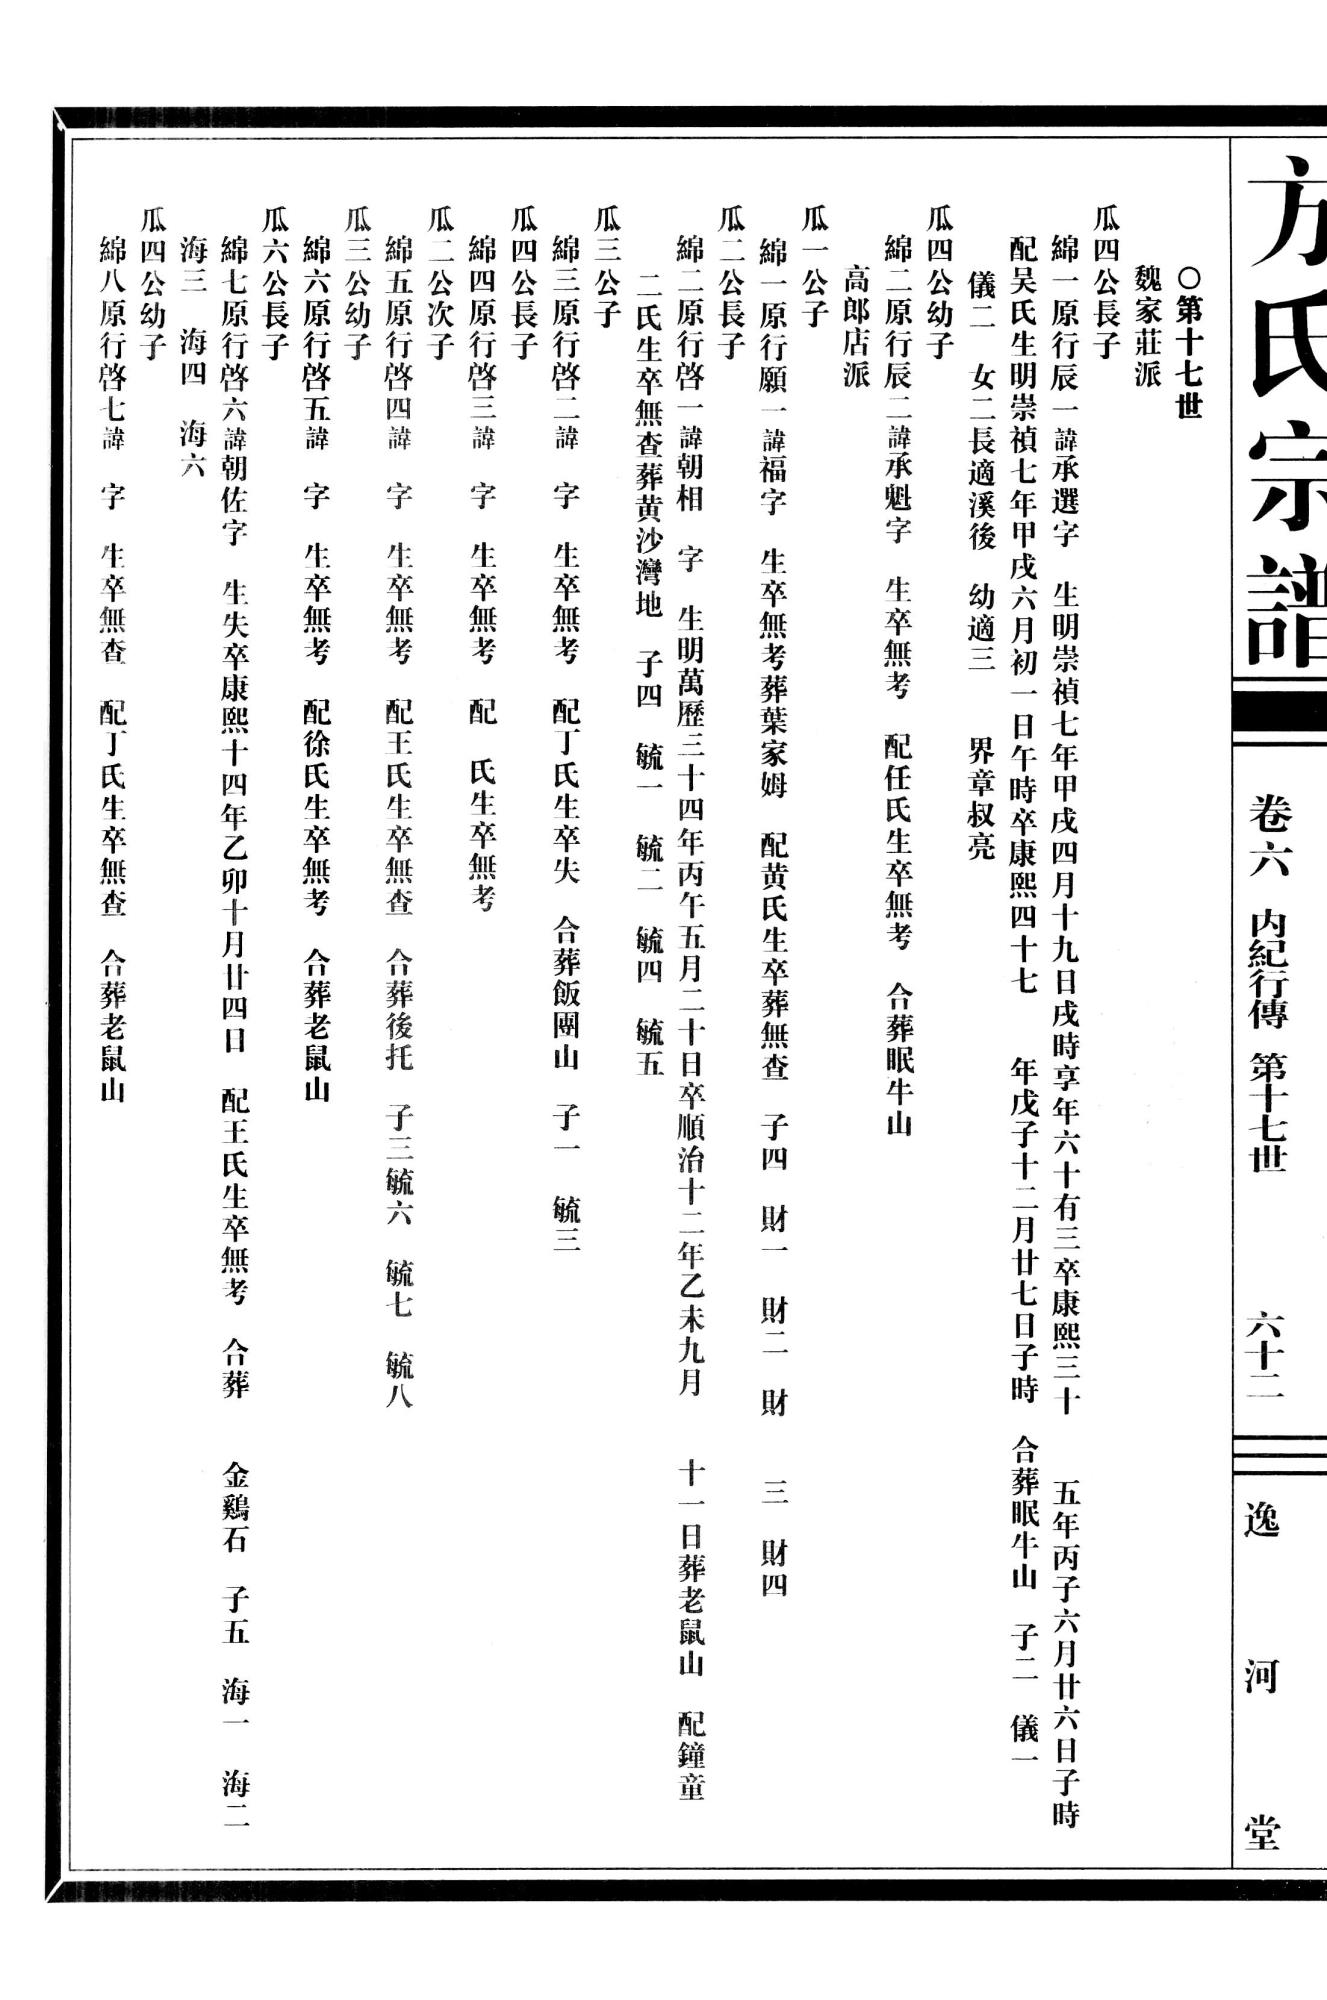 方氏宗譜
卷六 内紀行傳 第十七世 六十二
逸河堂
○第十七世
魏家莊派
瓜四公長子
綿一原行辰一諱承選字 生明崇禎七年甲戌四月十九日戌時享年六十有三卒康熙三十 五年丙子六月廿六日子時
配吴氏生明崇禎七年甲戌六月初一日午時卒康熙四十七 年戊子十二月廿七日子時 合葬眠牛山 子二 儀一
儀二 女二長適溪後 幼適三 界章叔亮
瓜四公幼子
綿二原行辰二諱承魁字 生卒無考 配任氏生卒無考 合葬眠牛山
高郎店派
瓜一公子
綿一原行願一諱福字 生卒無考葬葉家姆 配黄氏生卒葬無查 子四 財一 財二 財 三 財四
瓜二公長子
綿二原行啓一諱朝相 字 生明萬歷三十四年丙午五月二十日卒順治十二年乙未九月 十一日葬老鼠山 配鐘童
二氏生卒無查葬黄沙灣地 子四 毓一 毓二 毓四 毓五
瓜三公子
綿三原行啓二諱 字 生卒無考 配丁氏生卒失 合葬飯團山 子一 毓三
瓜四公長子
綿四原行啓三諱 字 生卒無考 配 氏生卒無考
瓜二公次子
綿五原行啓四諱 字 生卒無考 配王氏生卒無查 合葬後托 子三毓六 毓七 毓八
瓜三公幼子
綿六原行啓五諱 字 生卒無考 配徐氏生卒無考 合葬老鼠山
瓜六公長子
綿七原行啓六諱朝佐字 生失卒康熙十四年乙卯十月廿四日 配王氏生卒無考 合葬 金鷄石 子五 海一 海二
海三 海四 海六
瓜四公幼子
綿八原行啓七諱 字 生卒無查 配丁氏生卒無查 合葬老鼠山